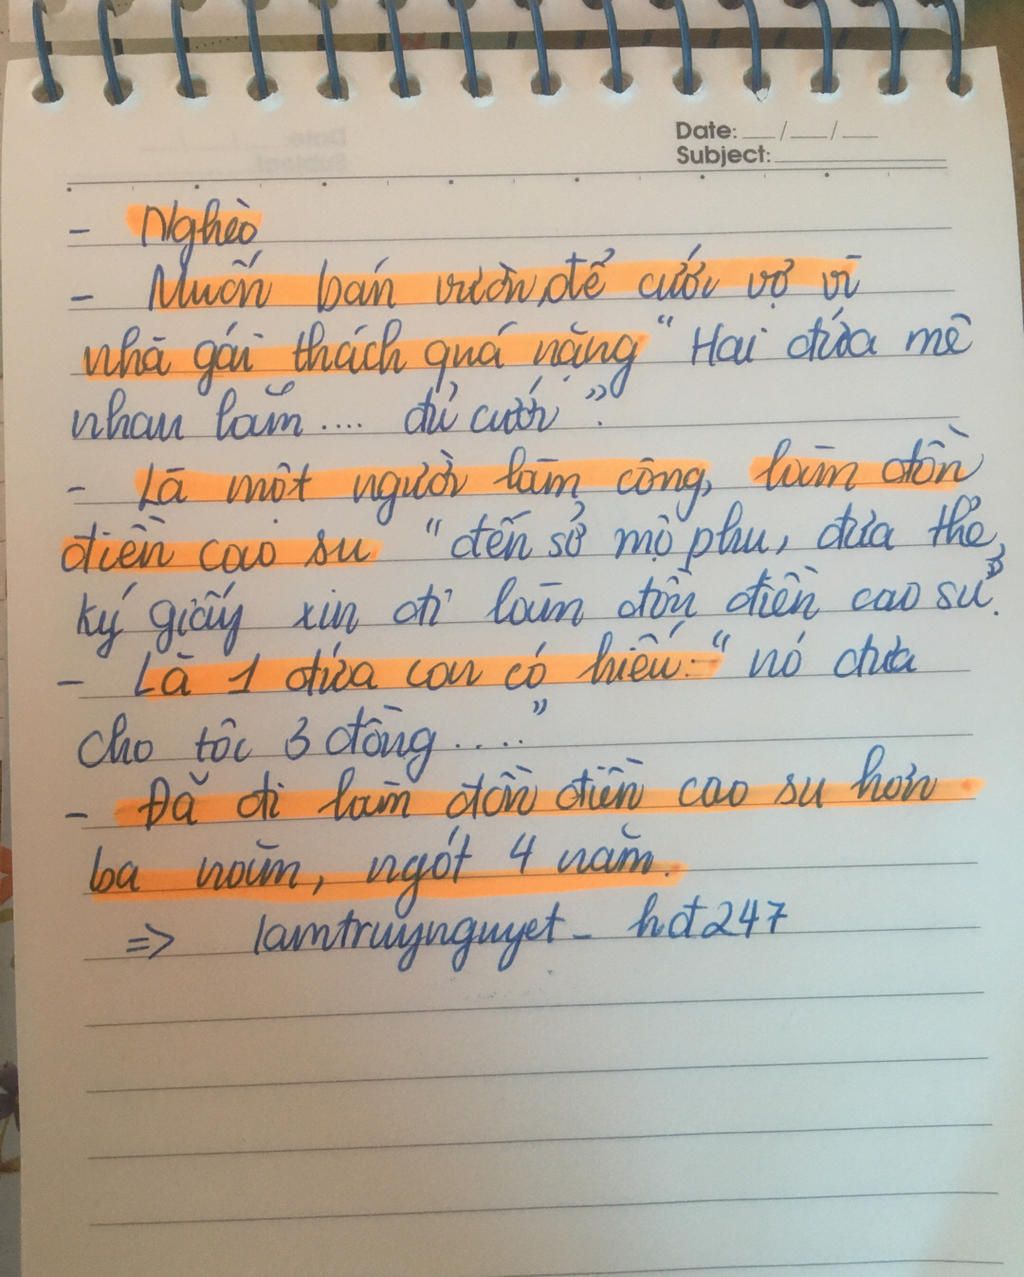 Date: __/__/__
Subject:
- Nghèo
- Muốn bán vườn để cưới vợ vì
nhà gái thách quá nặng "Hai đứa mê
nhau lắm .... đủ cưới".
- Là một người làm công, làm đồn
điền cao su "đến sở mộ phu, đưa thẻ,
ký giấy xin đi làm đồn điền cao su".
- Là 1 đứa con có hiếu: "nó đưa
cho tôi 3 đồng ....."
- Đã đi làm đồn điền cao su hơn
ba năm, ngót 4 năm.
=> lamtruynguyet - hđ247